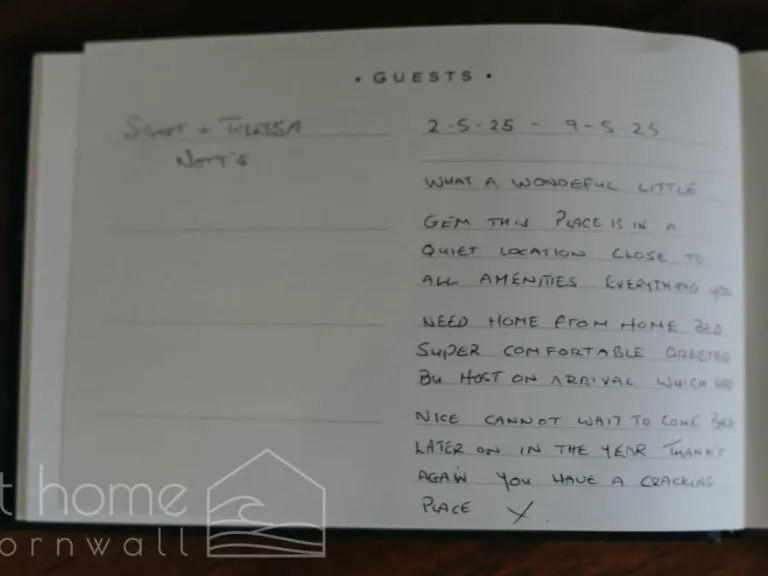 • GUESTS •
2-5-25 - 9-5-25
NOTT'S
WHAT A WONDEFUL LITTLE
GEM THIS PLACE IS IN A
QUIET LOCATION CLOSE TO
ALL AMENITIES EVERYTHING YOU
NEED HOME FROM HOME BED
SUPER COMFORTABLE GREETED
BY HOST ON ARRIVAL WHICH WAS
NICE CANNOT WAIT TO COME BACK
LATER ON IN THE YEAR THANK'S
AGAIN YOU HAVE A CRACKING
PLACE X.
t home
ornwall